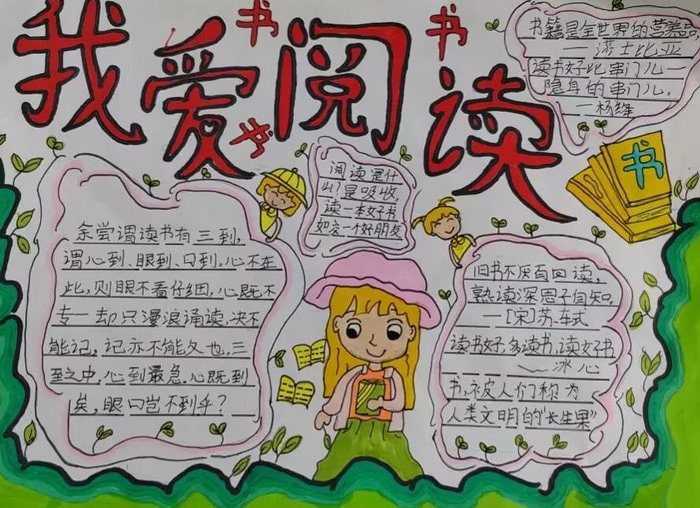 我爱阅读
书
书
书
书籍是全世界的营养品
——莎士比亚
读书好比串门儿——
隐身的串门儿.
——杨绛
书
阅读是什
么?是吸收,
读一本好书
如交一个好朋友
余尝谓读书有三到,
谓心到、眼到、口到。心不在
此,则眼不看仔细,心既不
专一却只漫浪诵读,决不
能记,记亦不能久也,三
至之中,心到最急,心既到
矣,眼口岂不到乎?
旧书不厌百回读,
熟读深思子自知。
——[宋]苏轼
读书好,多读书,读好书
——冰心
书,被人们称为
人类文明的"长生果"